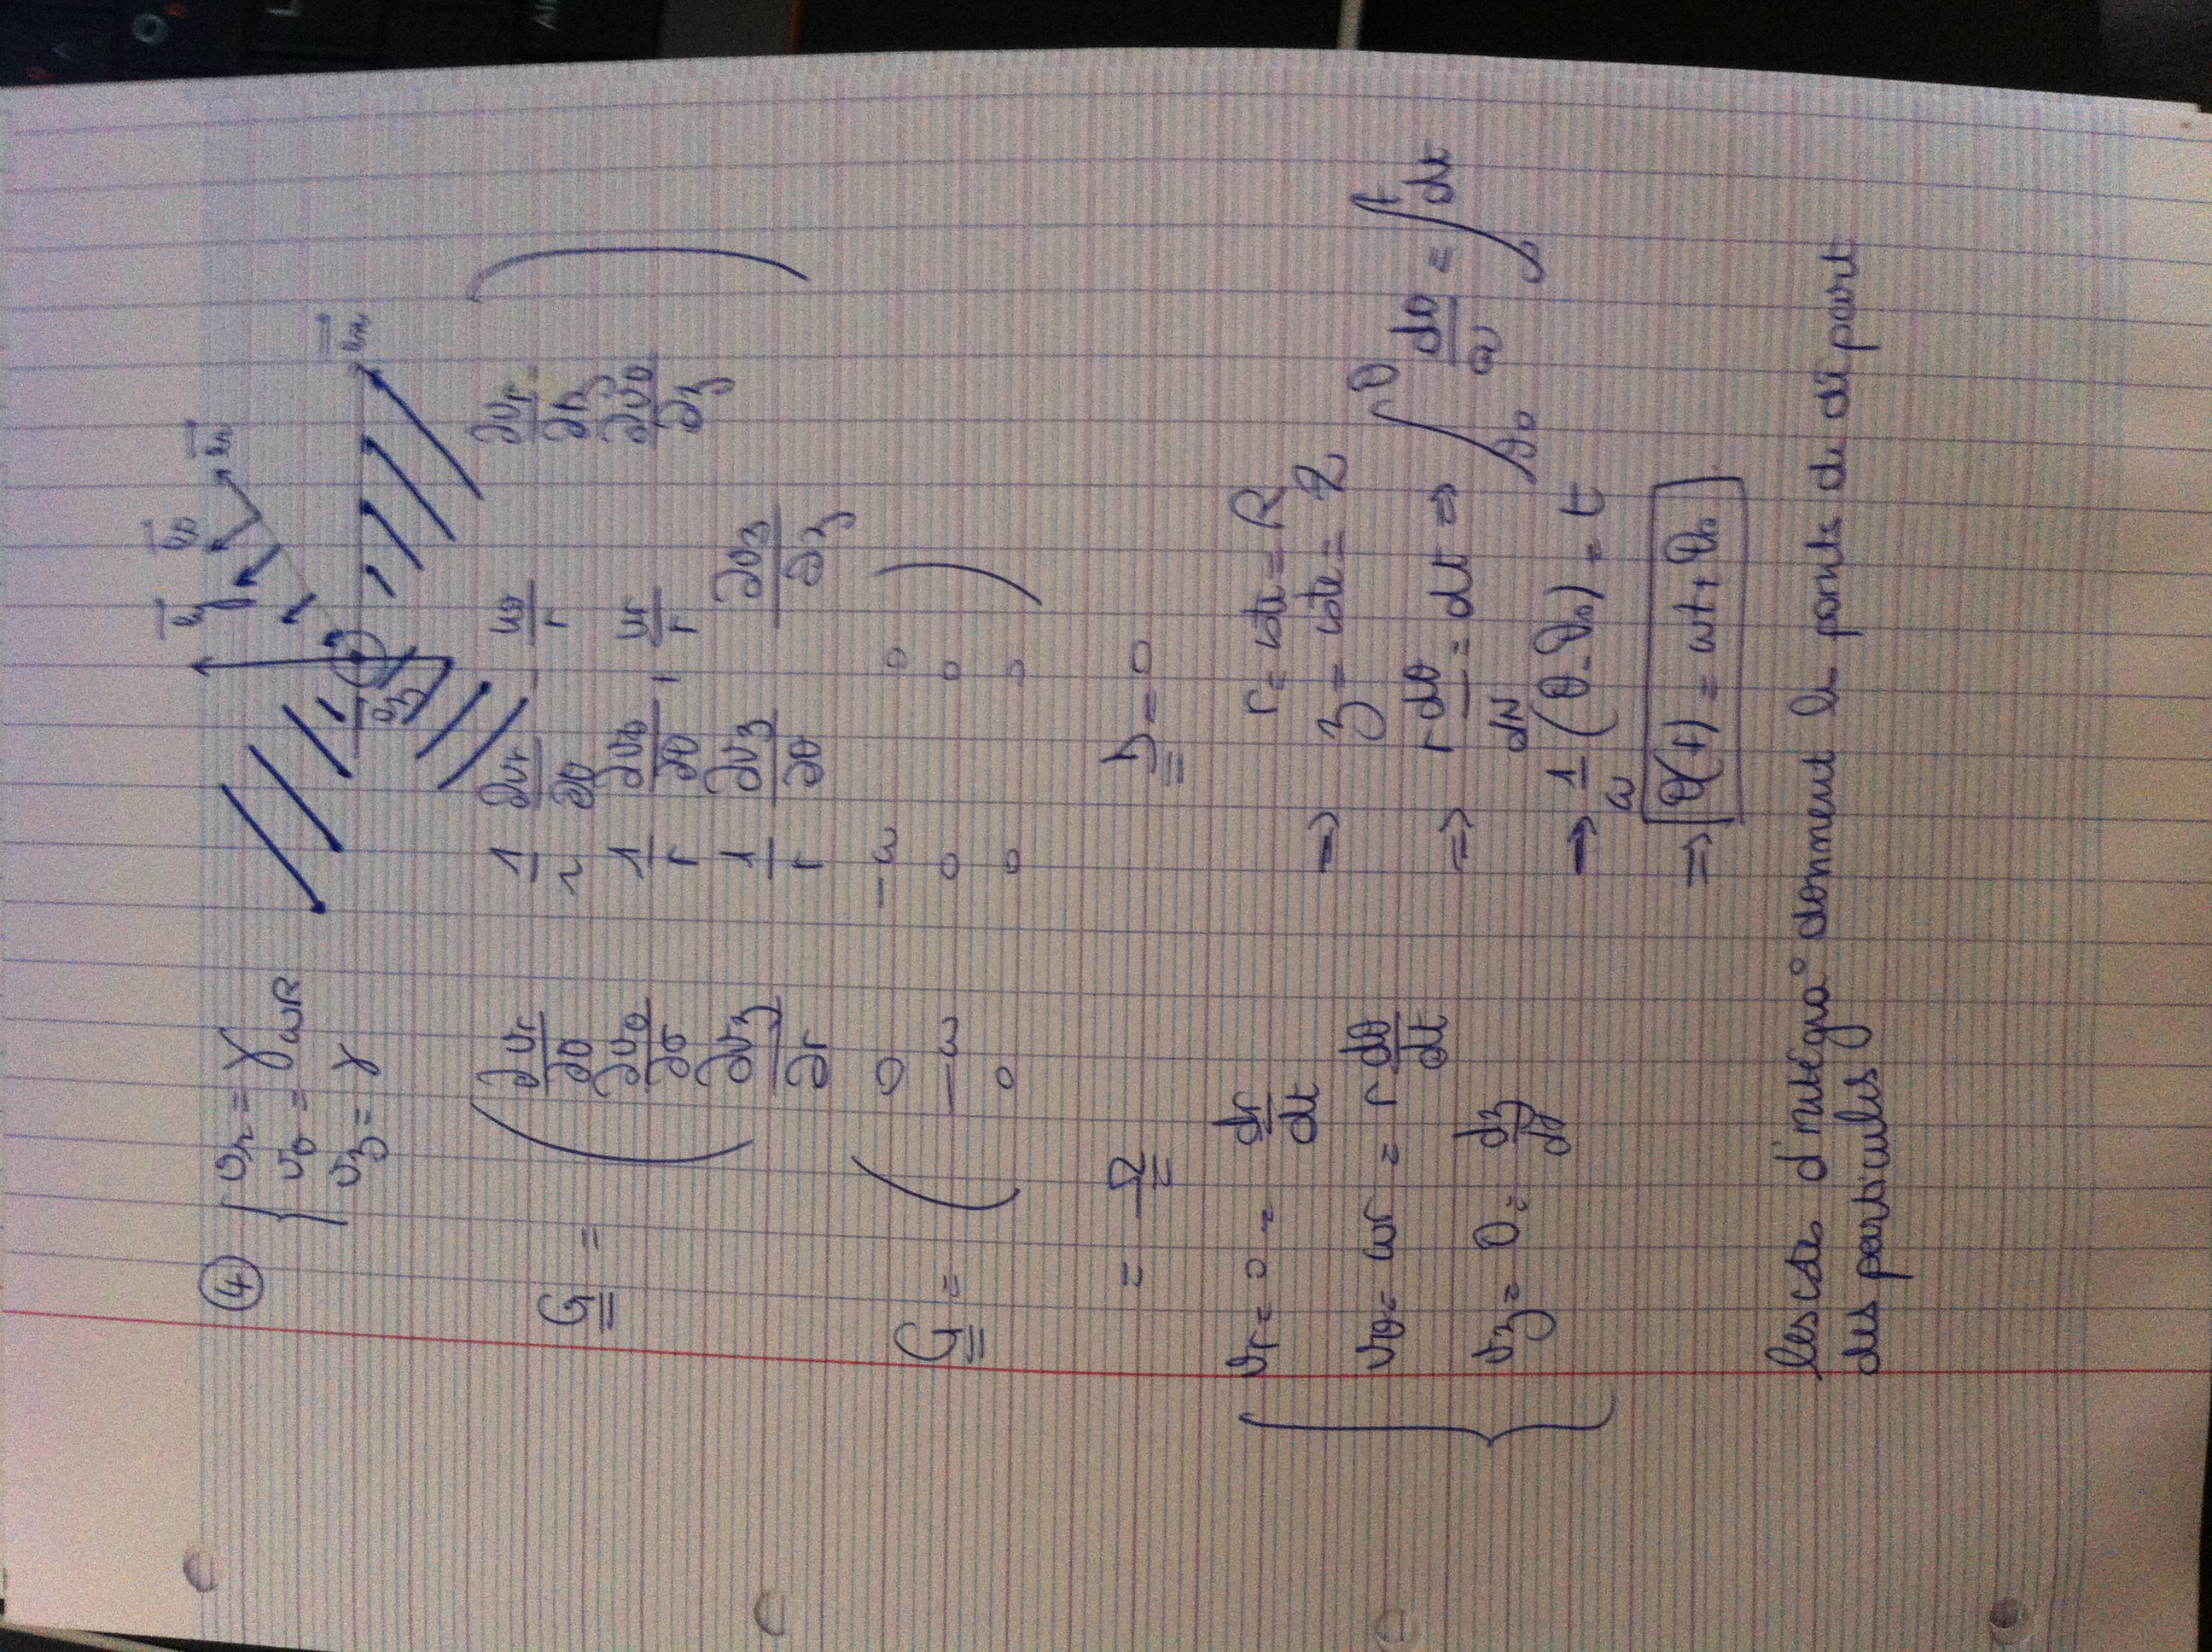 ④ { v_r = γ
v_θ = ωR
v_z = γ
e_y e_θ e_r
e_x
e_z
G = ( ∂v_r/∂θ 1/r ∂v_r/∂θ - u_θ/r ∂v_r/∂z
∂v_θ/∂r 1/r ∂v_θ/∂θ + u_r/r ∂v_θ/∂z
∂v_z/∂r 1/r ∂v_z/∂θ ∂v_z/∂z )
G = ( 0 -ω 0
-ω 0 0
0 0 0 )
= Ω D = 0
{ v_r = 0 = dr/dt r = cste = R
→ z = cste = Z
v_θ = ωr = r dθ/dt ⇒ r dθ/dN = dt ⇒ ∫_θ0^θ dθ/ω = ∫_0^t dt
v_z = 0 = dz/dt
→ 1/ω (θ-θ_0) = t
⇒ θ(t) = ωt + θ_0
les cstes d'intégra° donnent le points de départ
des particules